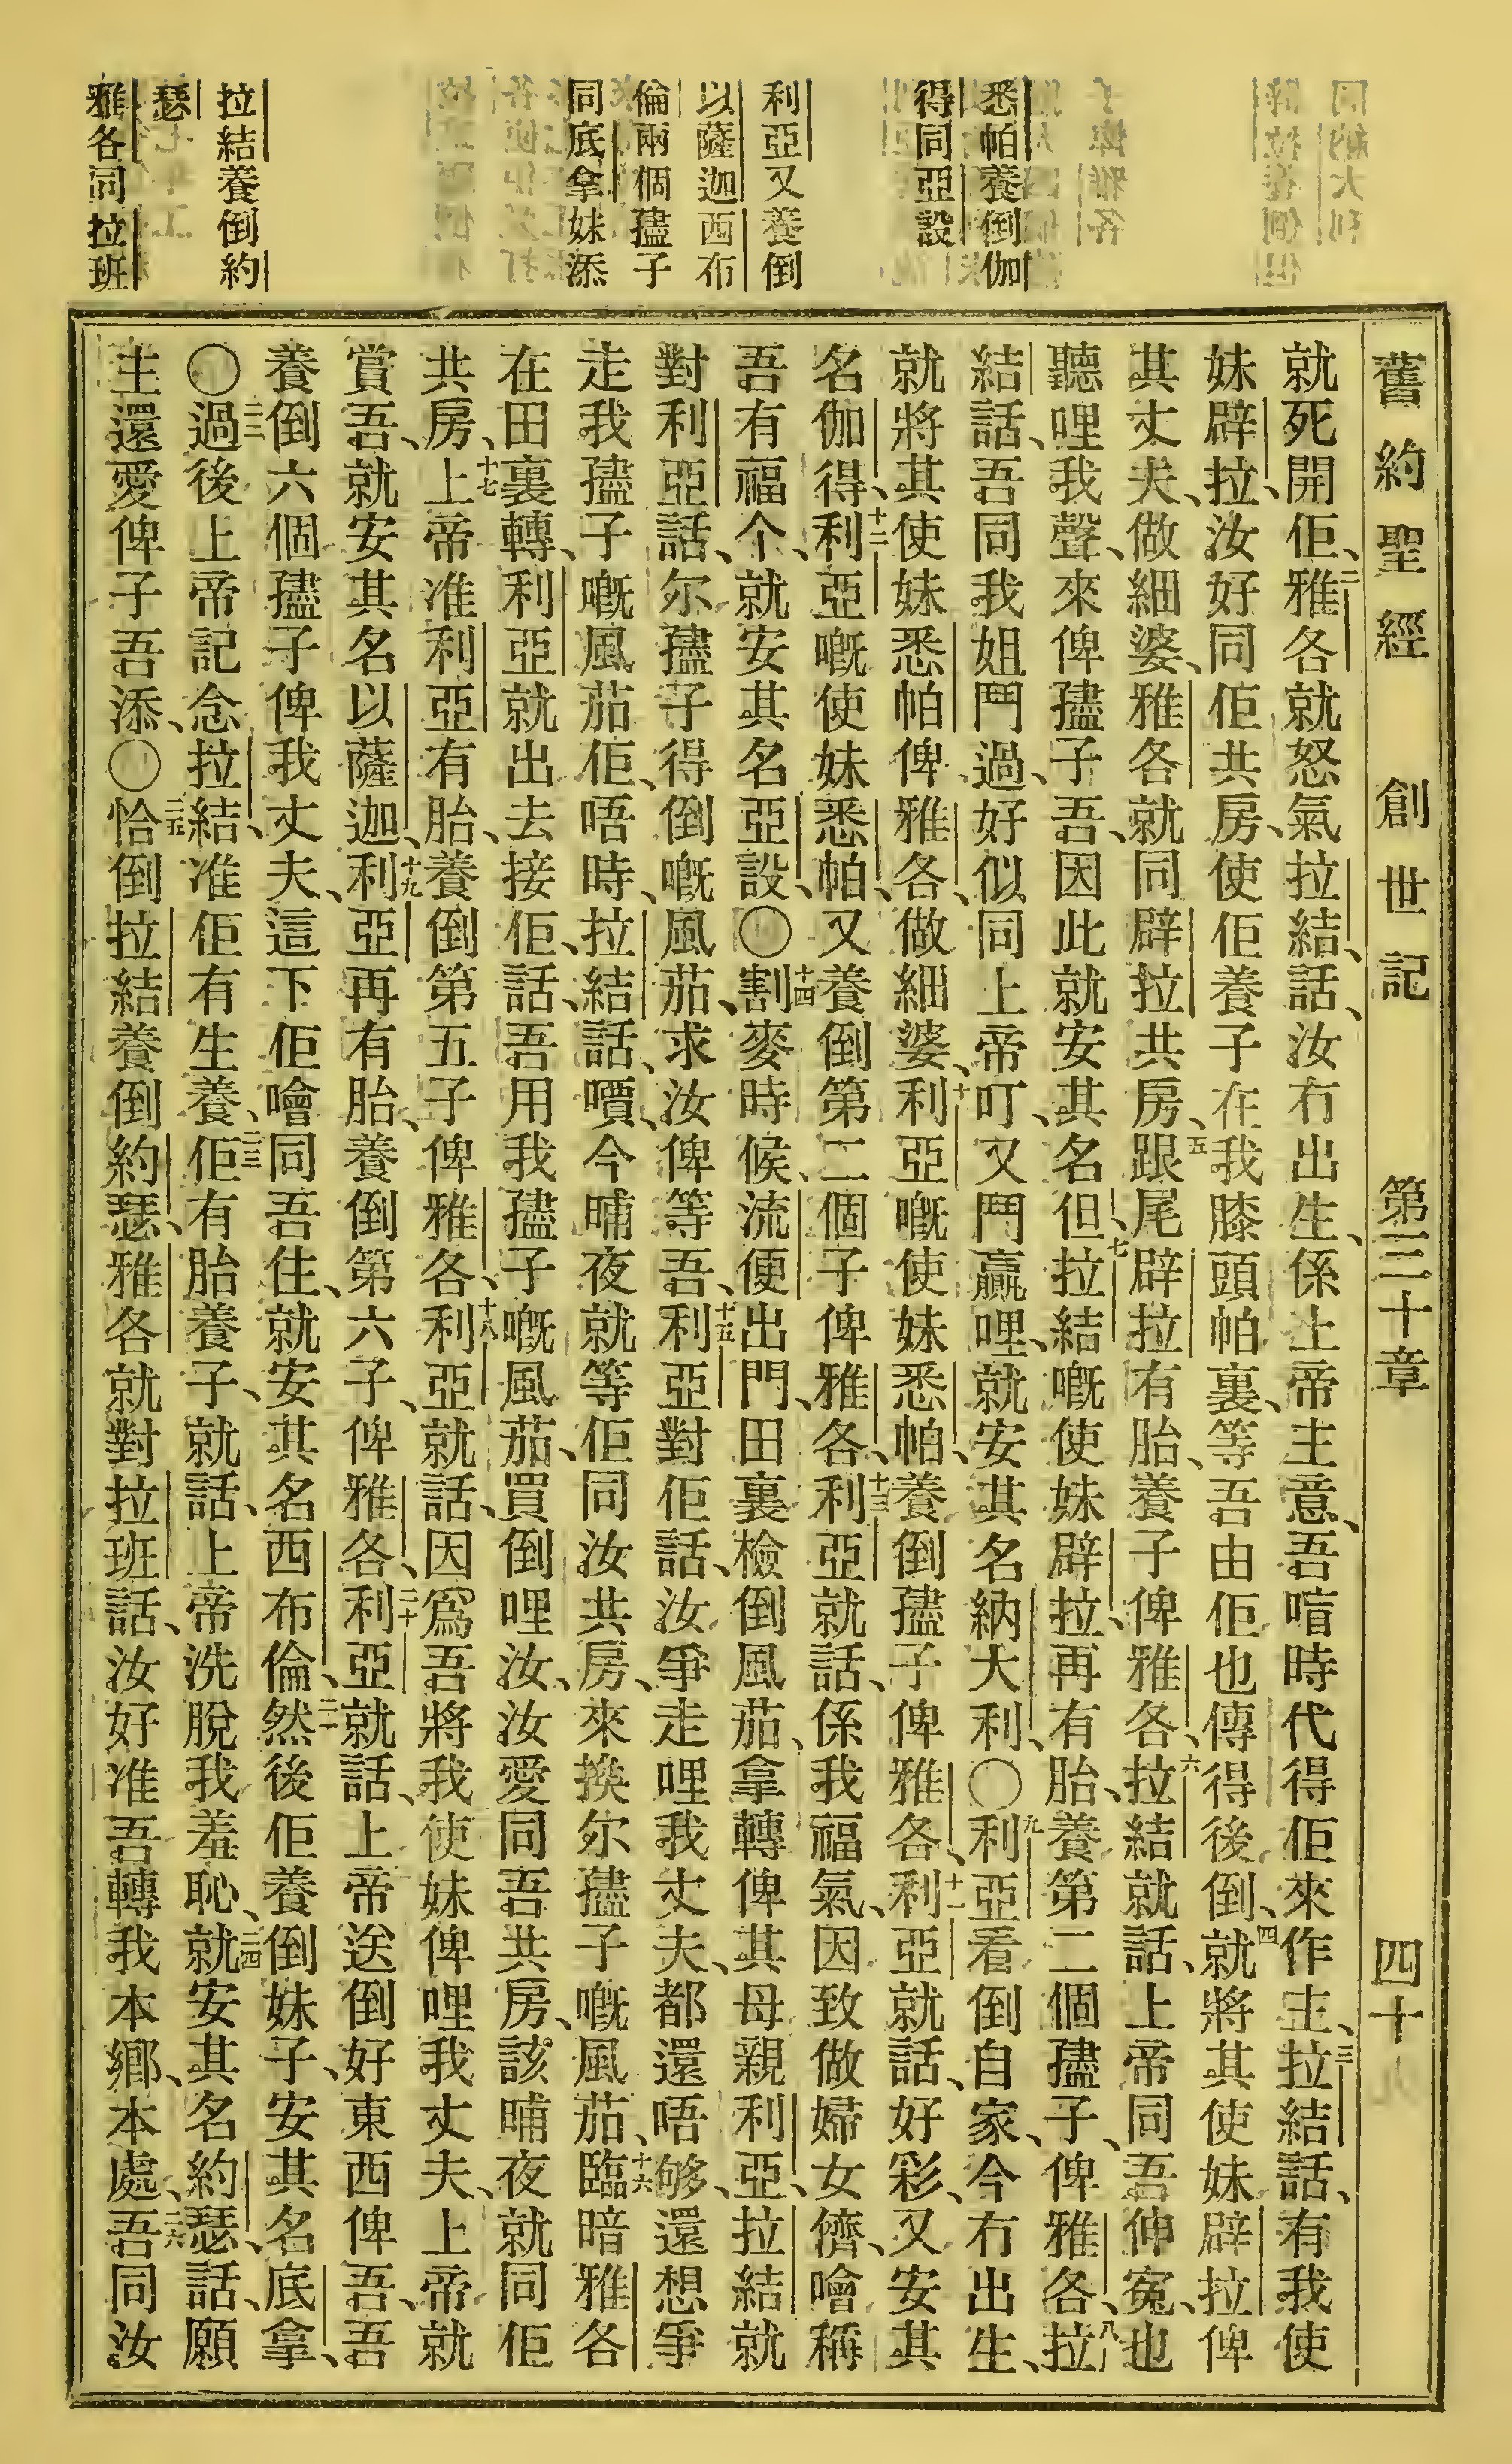 舊約聖經 創世記 第三十章 四十九
悉帕養倒伽
得同亞設
利亞又養倒
以薩迦西布
倫兩個孻子
同底拿妹添
拉結養倒約
瑟
雅各同拉班
就死開佢、二雅各就怒氣拉結、話、汝冇出生、係上帝主意、吾喑時代得佢來作主、三拉結話、有我使
妹辟拉、汝好同佢共房、使佢養子在我膝頭帕裏、等吾由佢也傳得後倒、四就將其使妹辟拉俾
其丈夫、做細婆、雅各就同辟拉共房、五跟尾辟拉有胎、養子俾雅各、六拉結就話、上帝同吾伸冤、也
聽哩我聲、來俾孻子吾、因此就安其名但、七拉結嘅使妹辟拉、再有胎、養第二個孻子、俾雅各、八拉
結話、吾同我姐鬥過、好似同上帝叮、又鬥贏哩、就安其名納大利、〇九利亞看倒自家、今冇出生、
就將其使妹悉帕俾雅各、做細婆、十利亞嘅使妹悉帕、養倒孻子俾雅各、十一利亞就話、好彩、又安其
名伽得、十二利亞嘅使妹悉帕、又養倒第二個子俾雅各、十三利亞就話、係我福氣、因致做婦女儕、噲稱
吾有福个、就安其名亞設、〇十四割麥時候、流便出門、田裏檢倒風茄、拿轉俾其母親利亞、拉結就
對利亞話、尔孻子得倒嘅風茄、求汝俾等吾、十五利亞對佢話、汝爭走哩我丈夫、都還唔够、還想爭
走我孻子嘅風茄佢、唔時、拉結話、嘪、今晡夜就等佢同汝共房、來換尔孻子嘅風茄、十六臨暗雅各
在田裏轉、利亞就出去接佢、話、吾用我孻子嘅風茄、買倒哩汝、汝愛同吾共房、該晡夜就同佢
共房、十七上帝准利亞有胎、養倒第五子俾雅各、十八利亞就話、因爲吾將我使妹俾哩我丈夫、上帝就
賞吾、就安其名以薩迦、十九利亞再有胎、養倒第六子、俾雅各、二十利亞就話、上帝送倒好東西俾吾、吾
養倒六個孻子俾我丈夫、這下佢噲同吾住、就安其名西布倫、二一然後佢養倒妹子、安其名底拿、
〇二二過後上帝記念拉結、准佢有生養、二三佢有胎養子、就話、上帝洗脫我羞恥、二四就安其名約瑟、話、願
主還愛俾子吾添、〇二五恰倒拉結養倒約瑟、雅各就對拉班話、汝好准吾轉我本鄉、本處、二六吾同汝